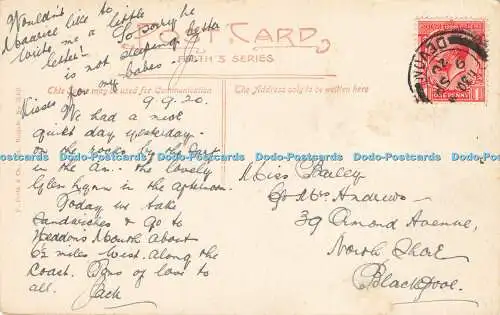 Wouldn't
Maurice like to
write me a little
letter? Sorry he
is not sleeping better
POST CARD
FRITH'S SERIES
This space may be used for Communication
The Address only to be written here
Kisses for my babes
9.9.20.
We had a nice
quiet day yesterday.
on the rocks by the
in the
lovely
Glen Lynn in the afternoon.
Today we take
sandwiches & go to
Heddons Mouth about
6½ miles West. along the
Coast. Tons of love to
all. Jack
Miss Bailey
c/o Mrs Andrews
39 Ormond Avenue,
North Shore
Blackpool.
DEVON
ONE PENNY
Dodo-Postcards Dodo-Postcards Dodo-Postcards Dodo-Postcards Dodo-Postcards Dodo-Postcards